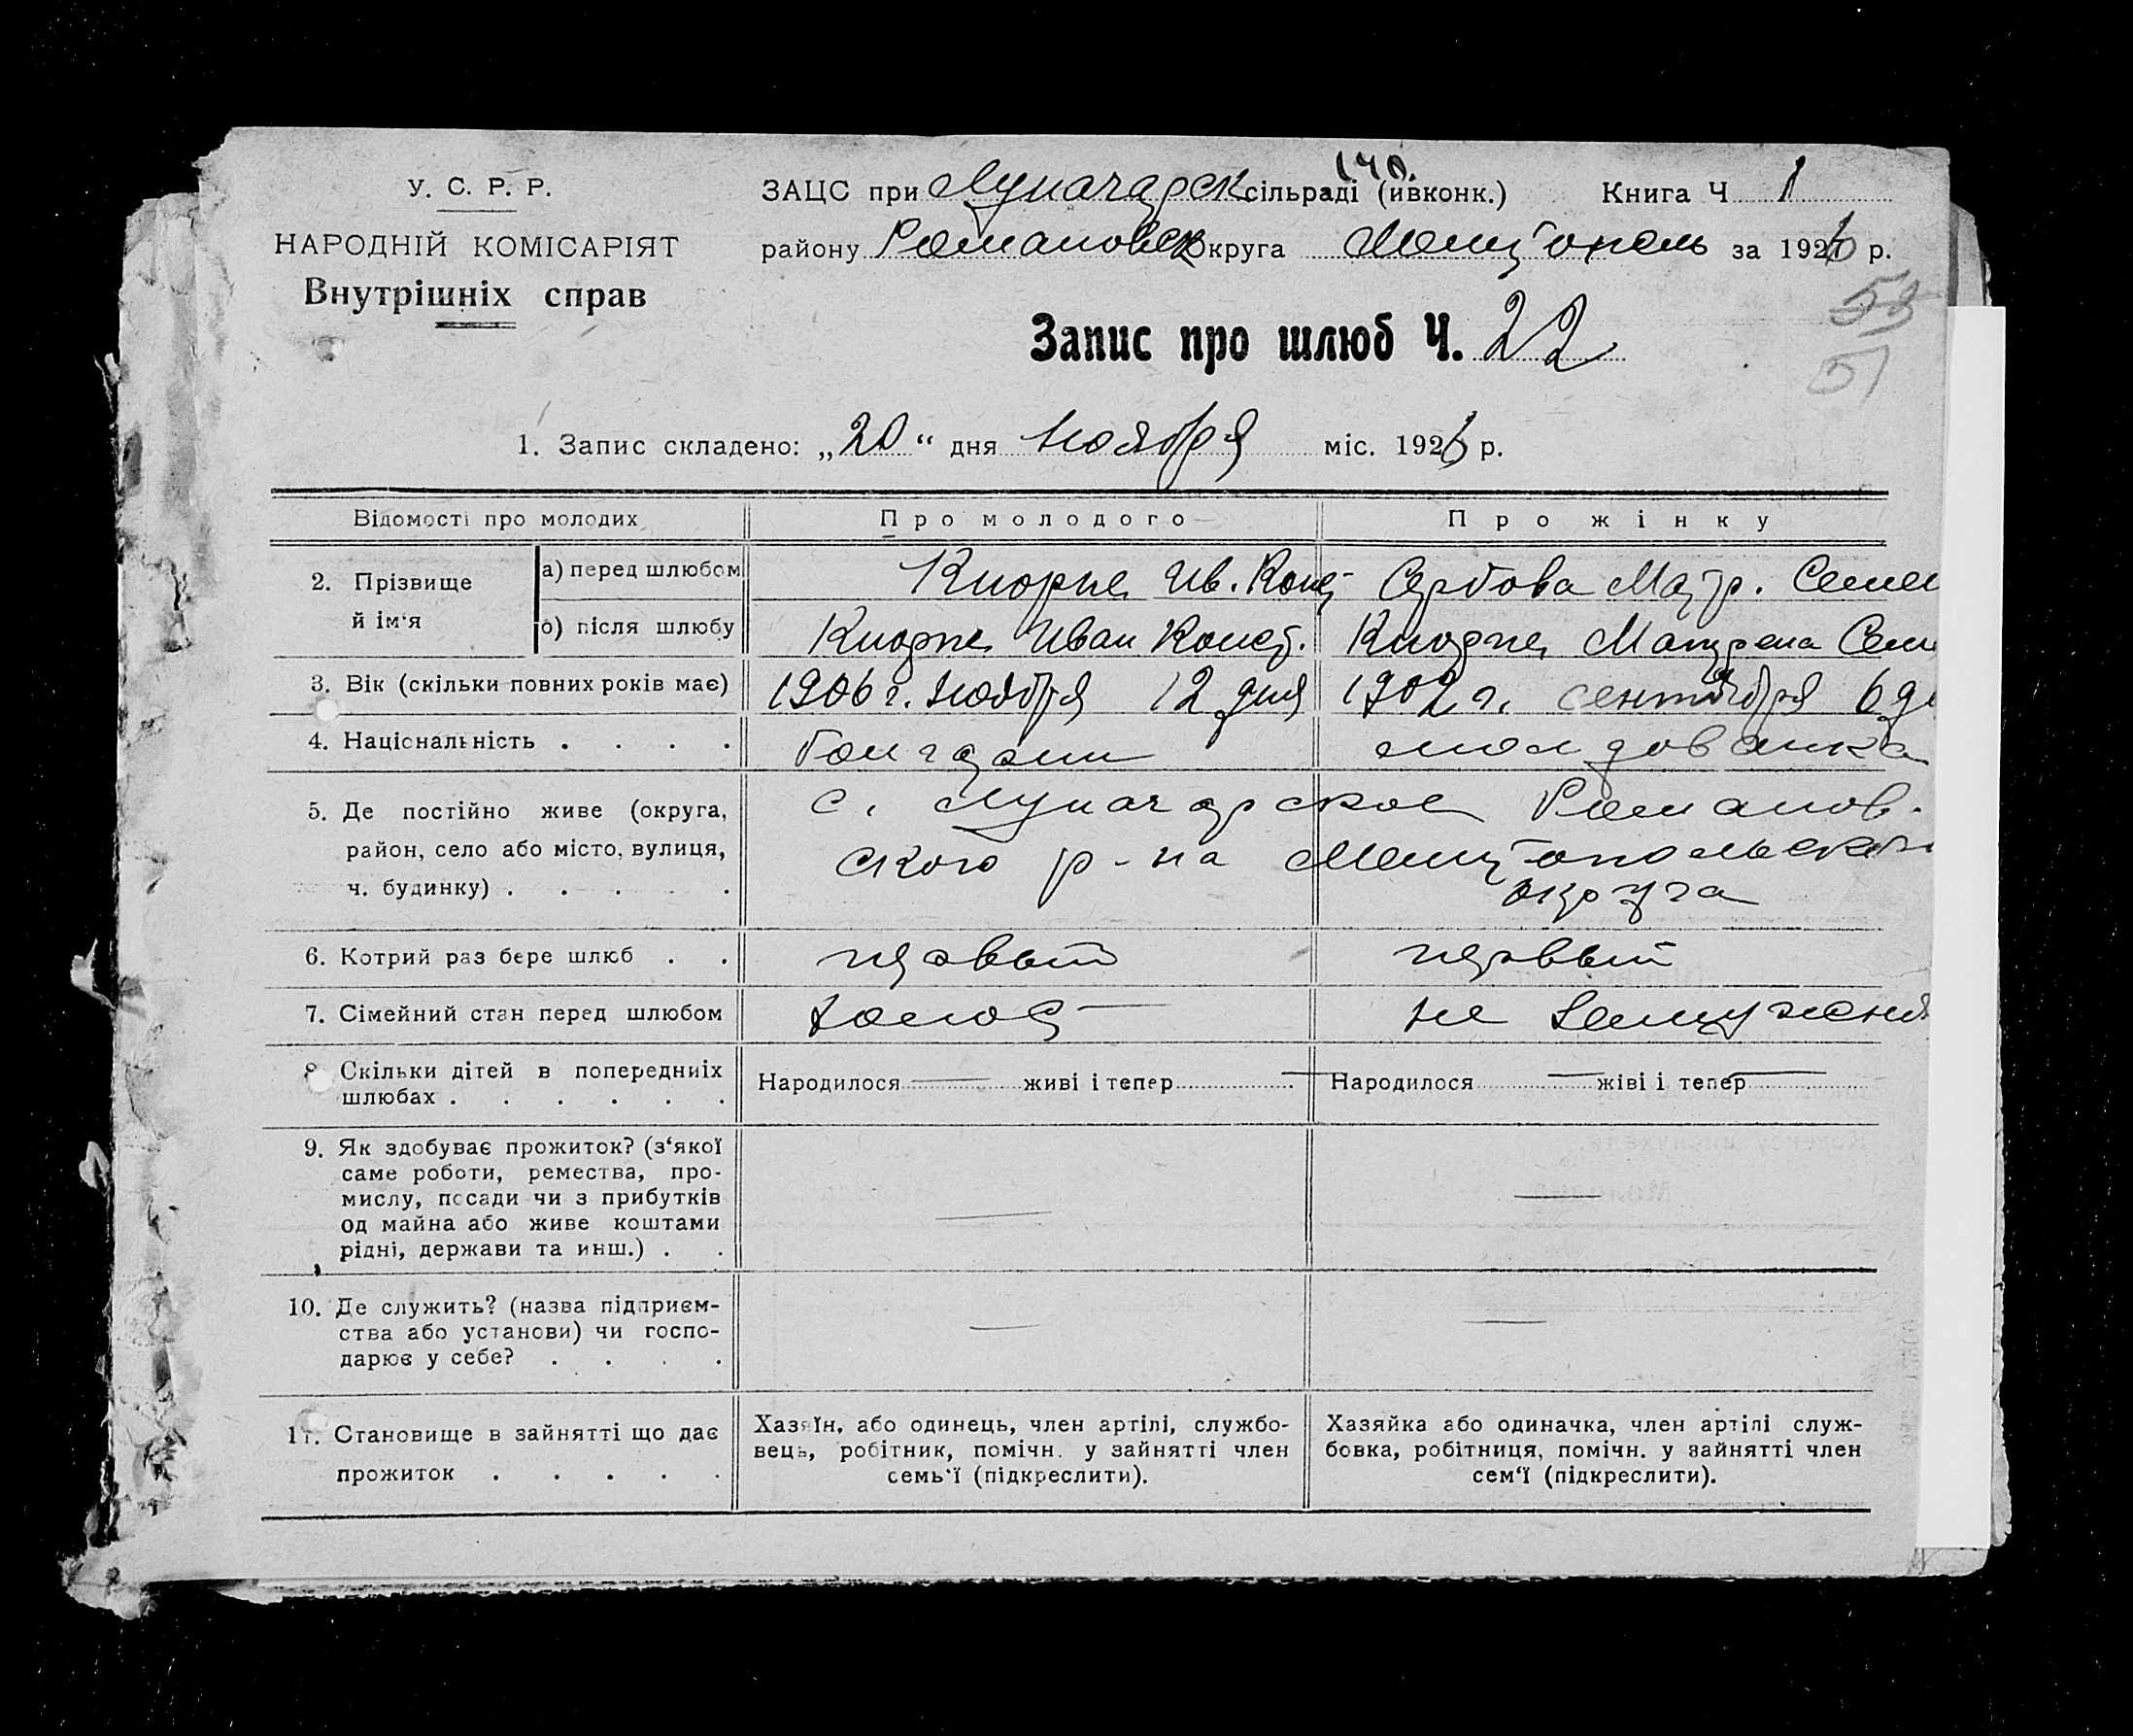 У. С. Р. Р.
НАРОДНІЙ КОМІСАРІЯТ
Внутрішніх справ
ЗАЦС при Луначарск сільраді (ивконк.) Книга Ч 1
району Романовск округа Мелитополь за 1926 р.
Запис про шлюб Ч. 22
1. Запис складено: „20“ дня ноября міс. 1926 р.
Відомості про молодих Про молодого Про жінку
2. Прізвище й ім‘я
а) перед шлюбом Ив. Конст Сербова Матр. Семен
б) після шлюбу Иван Конст. Матрена Сем
3. Вік (скільки повних років має) 1906 г. ноября 12 дня 1902 г. сентября 6 дн
4. Національність . . . . молдованка
5. Де постійно живе (округа, район, село або місто, вулиця, ч. будинку) . . . . .
с. Луначарское Романов-
ского р-на Мелитопольского
округа
6. Котрий раз бере шлюб . . первый первый
7. Сімейний стан перед шлюбом холост не замужняя
8. Скільки дітей в попередниіх шлюбах . . . . . .
Народилося — живі і тепер — Народилося — жіві і тепер —
9. Як здобуває прожиток? (з‘якої
саме роботи, ремества, про-
мислу, посади чи з прибутків
од майна або живе коштами
рідні, держави та инш.) . .
— —
10. Де служить? (назва підприєм-
ства або установи) чи госпо-
дарює у себе? . . . .
— —
11. Становище в зайнятті що дає
прожиток . . . . .
Хазяїн, або одинець, член артілі, службо-
вець, робітник, помічн. у зайнятті член
семь‘ї (підкреслити).
Хазяйка або одиначка, член артілі служ-
бовка, робітниця, помічн. у зайнятті член
сем‘ї (підкреслити).